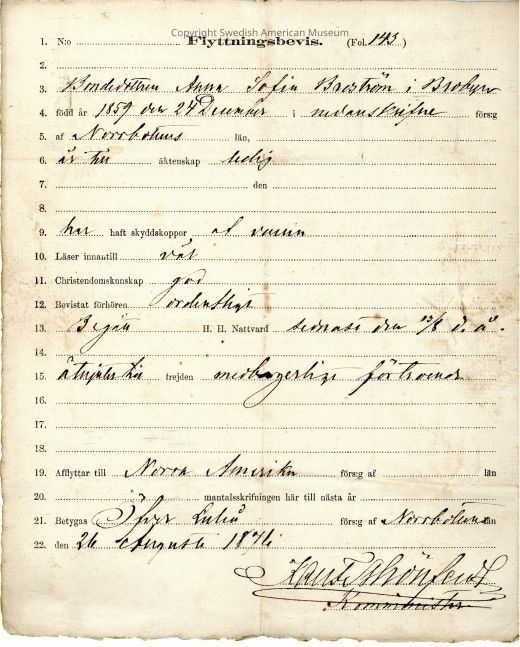 Copyright Swedish American Museum
1. N:o Flyttningsbevis. (Fol. 143)
2.
3. Bondedottren Anna Sofia Broström i Brobyn
4. född år 1859 den 24 December i nedanskrifne förs:g
5. af Norrbottens län,
6. är till äktenskap ledig
7. den
8.
9. har haft skyddskoppor af vaccin
10. Läser innantill väl
11. Christendomskunskap god
12. Bevistat förhören ordentligt
13. Begått H. H. Nattvard sednast den 13/8 d. å.
14.
15. åtnjuter till frejden medborgerligt förtroende
16.
17.
18.
19. Afflyttar till Norra Amerika förs:g af län
20. mantalsskrifningen här till nästa år
21. Betygas Öfver Luleå förs:g af Norrbottens län
22. den 26 Augusti
Komminister